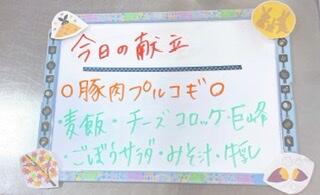 今日の献立
○豚肉プルコギ○
・麦飯・チーズコロッケ・巨峰
・ごぼうサラダ・みそ汁・牛乳